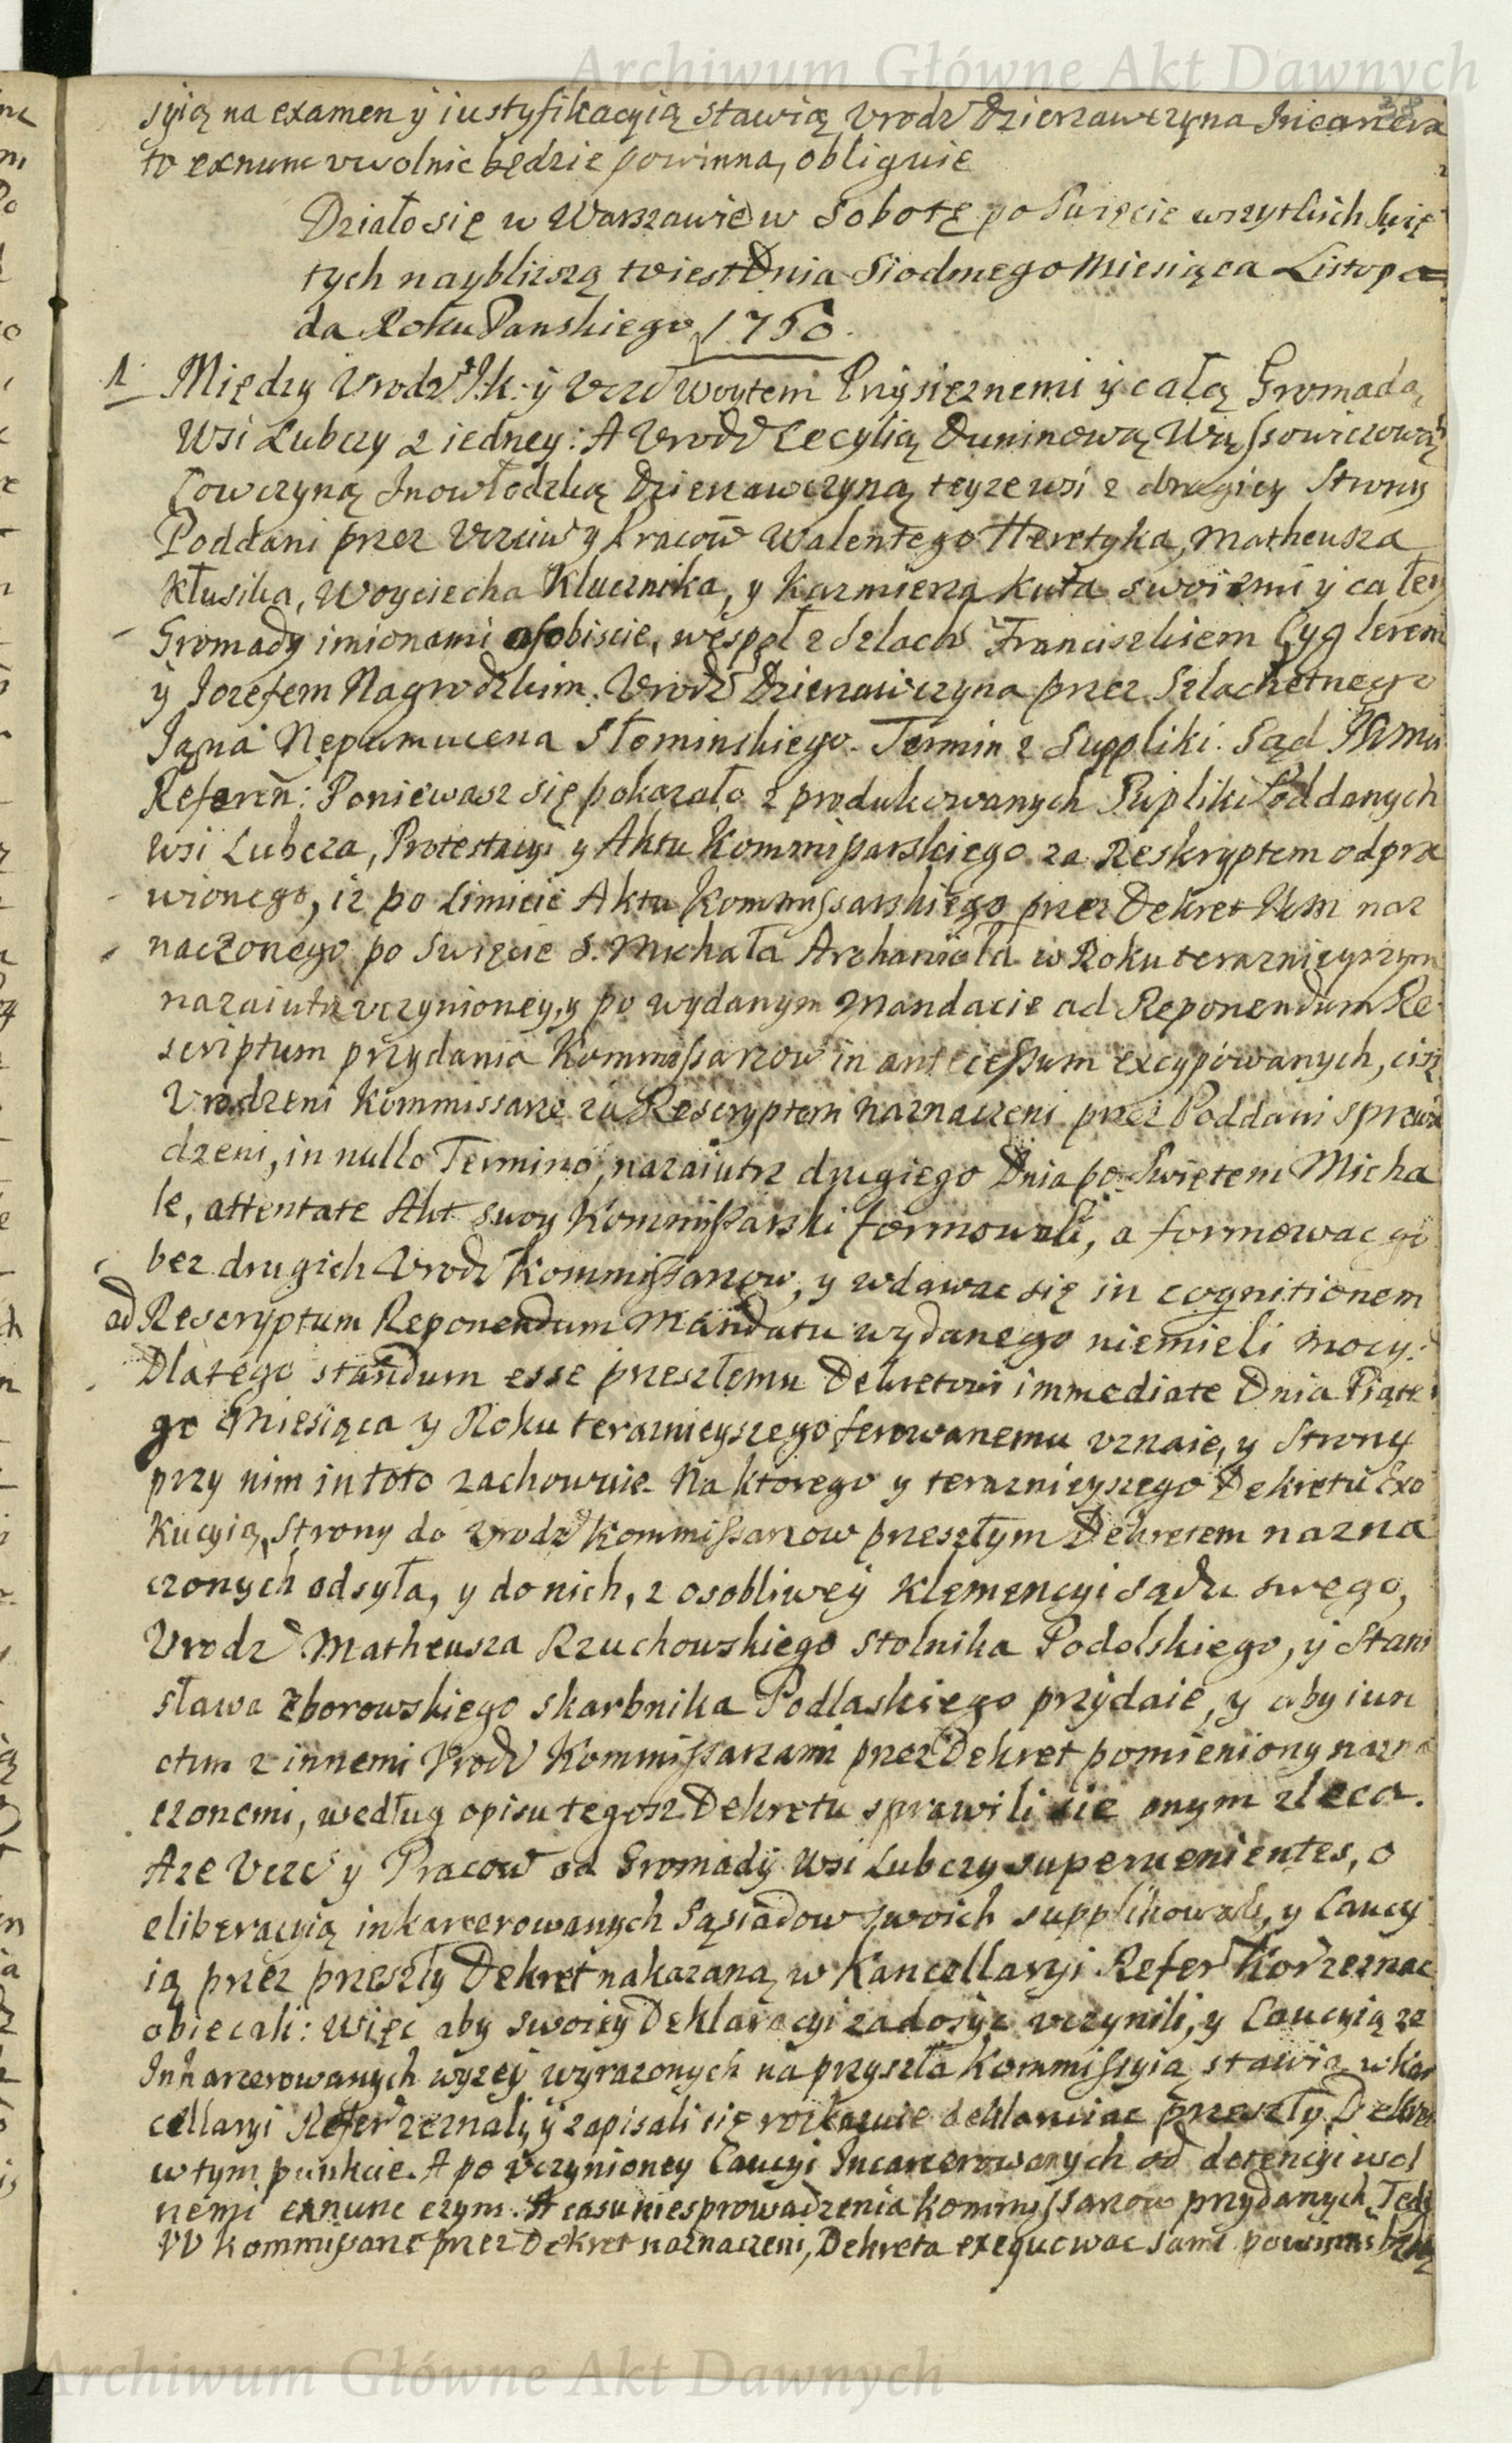 Archiwum Główne Akt Dawnych
syią na examen ÿ iustyfikacyią stawią Vrodz Dzierzawczyna Incarcera
to exnunc vwolnic będzie powinna, obliguie
Działo się w Warszawie w Sobotę po Swięcie wszytkich Swię
tych naybliszą to iest Dnia Siodmego Miesiąca Listopa=
da Roku Panskiego 1750.
1. Między Vrodz J.K. ÿ Vczc Woytem Przysięznemi ÿ całą Gromadą
Wsi Lubczy z iedney: A Vrodz Cecylią Duninową Wąssowiczową
Łowczyną Inowłodzką Dzierzawczyną teyze wsi z drugiey Strony
Poddani przez Vczciw y Pracow Walentego Heretyka, Matheusza
Kłusika, Woyciecha Klucznika, y Kazmierza Kuta swoiemi ÿ całey
Gromady imionami osobiscie, wespoł z Szlach Franciszkiem Cyglerem
ÿ Jozefem Nagrodzkim. Vrodz Dzierzawczyna przez Szlachetnego
Jana Nepumucena Słominskiego. Termin z Suppliki. Sąd JKMci
Referen: Poniewasz się pokazało z produkowanych Supliki Poddanych
wsi Lubcza, Protestacyi y Aktu Kommissarskiego za Reskryptem odpra
wionego, iz po Limicie Aktu Kommissarskiego przez Dekret JKM naz
naczonego po Swięcie S. Michała Archanioła w Roku teraznieyszym
nazaiutrz vczynioney, y po wydanym Mandacie ad Reponendum Re
scriptum przydania Kommissarzow in antecessum excypowanych, cisz
Vrodzeni Kommissarze za Rescryptem naznaczeni przez Poddani sprowa
dzeni, in nullo Termino, nazaiutrz drugiego Dnia po Swiętem Micha
le, attentate Akt swoy Kommissarski formowali, a formowac go
bez drugich Vrodz Kommissarzow, y wdawac się in cognitionem
ad Rescryptum Reponendum Mandatu wydanego niemieli mocy.
Dlatego standum esse przeszłemu Dekretowi immediate Dnia Piąte
go Miesiąca y Roku teraznieyszego ferowanemu vznaie, y Strony
przy nim in toto zachowuie. Na ktorego y teraznieyszego Dekretu Exe
kucyią, Strony do Vrodz Kommissarzow przeszłym Dekretem nazna
czonych odsyła, y do nich, z osobliwey Klemencyi sądu swego,
Vrodz Matheusza Rzuchowskiego Stolnika Podolskiego, ÿ Stani
sława Zborowskiego Skarbnika Podlaskiego przydaie, y aby iun
ctim z innemi Vrodz Kommissarzami przez Dekret pomieniony nazna
czonemi, według opisu tegosz Dekretu sprawili sie onym zleca.
A ze Vczc y Pracow od Gromady Wsi Lubczy supervenientes, o
eliberacyią inkarcerowanych Sąsiadow swoich supplikowali, y Caucy
ią przez przeszły Dekret nakazaną w Kancellaryi Refer Kor zeznac
obiecali: Więc aby swoiey Deklaracyi zadosyc vczynili, y Caucyią ze
Inkarcerowanych wyzey wyrazonych na przyszłą Kommissyią stawią w kan
cellaryi Refer zeznali, y zapisali się rozkazuie deklaruiac przeszły Dekret
w tym punkcie. A po vczynioney Caucyi Incarcerowanych od detencyi wol
nemi exnunc czyni. A casu niesprowadzenia Kommissarzow przydanych, Tedy
VV Kommissarze przez Dekret naznaczeni, Dekreta exequowac sami powinni będą
Archiwum Główne Akt Dawnych